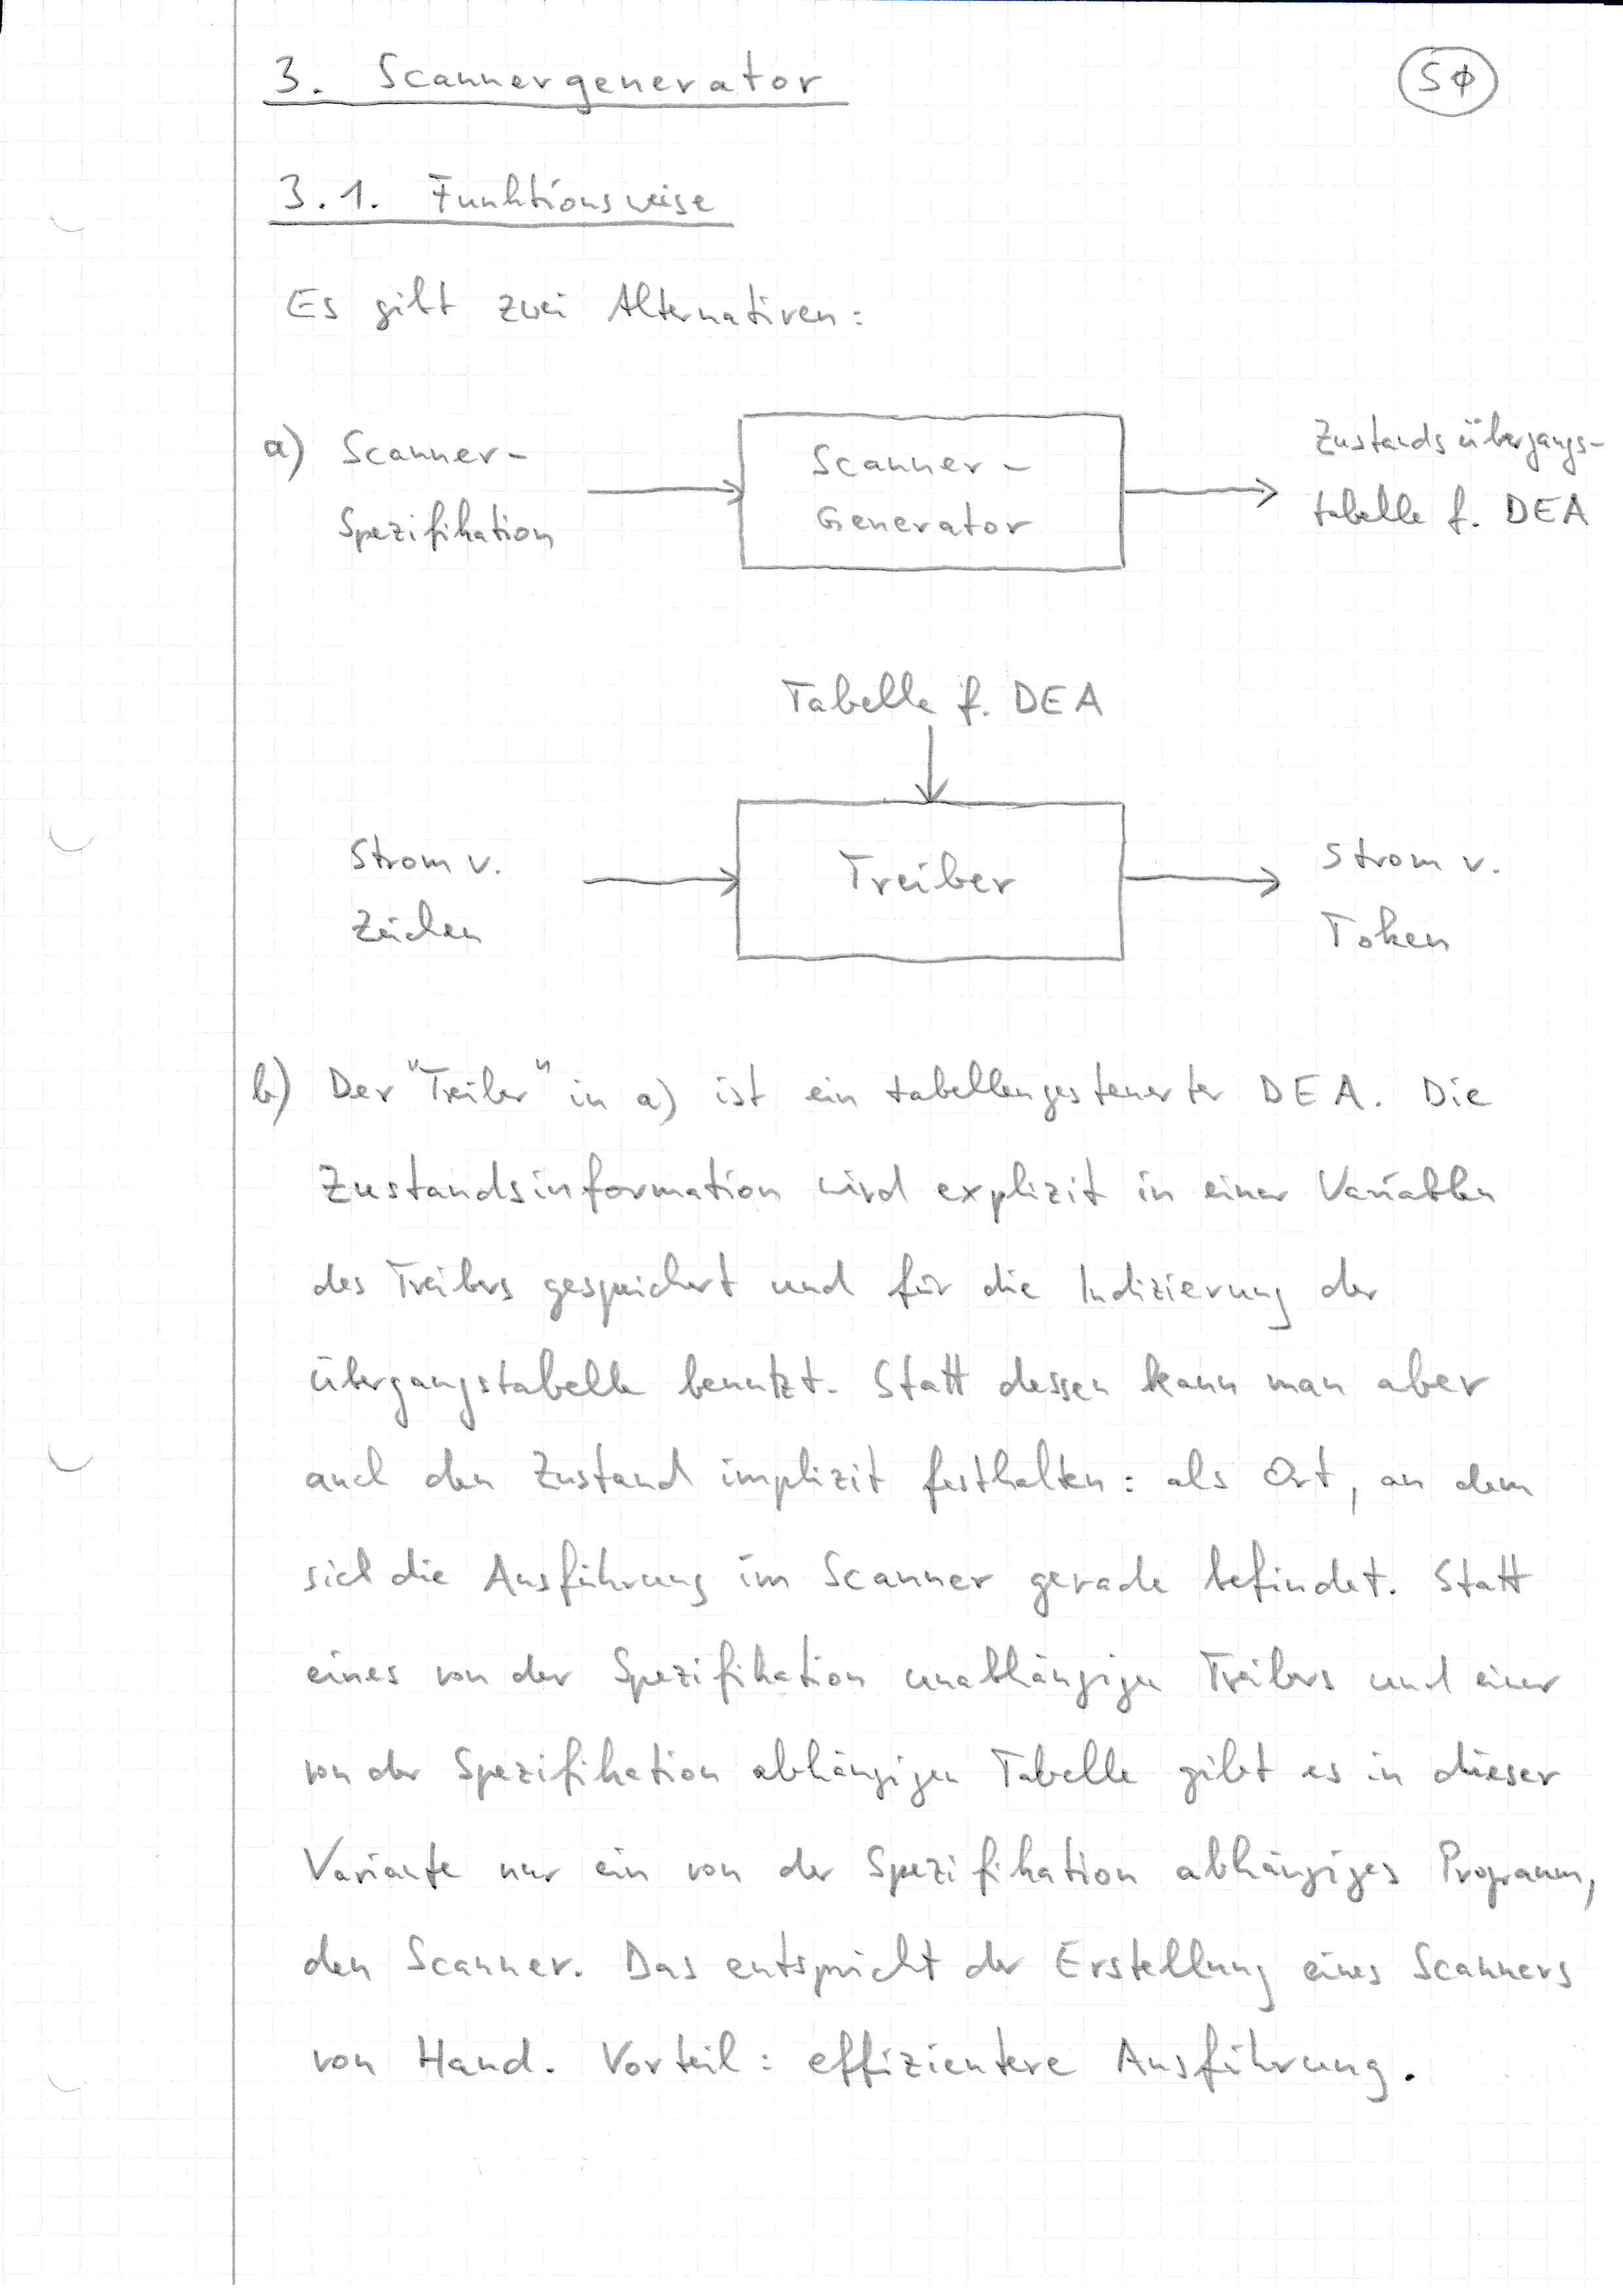 3. Scannergenerator
50
3.1. Funktionsweise
Es gibt zwei Alternativen:
a) Scanner-
Spezifikation
Scanner-
Generator
Zustandsübergangs-
tabelle f. DEA
Tabelle f. DEA
Strom v.
Zeichen
Treiber
Strom v.
Token
b) Der "Treiber" in a) ist ein tabellengesteuerter DEA. Die
Zustandsinformation wird explizit in einer Variablen
des Treibers gespeichert und für die Indizierung der
Übergangstabelle benutzt. Statt dessen kann man aber
auch den Zustand implizit festhalten: als Ort, an dem
sich die Ausführung im Scanner gerade befindet. Statt
eines von der Spezifikation unabhängigen Treibers und einer
von der Spezifikation abhängigen Tabelle gibt es in dieser
Variante nur ein von der Spezifikation abhängiges Programm,
den Scanner. Das entspricht der Erstellung eines Scanners
von Hand. Vorteil: effizientere Ausführung.